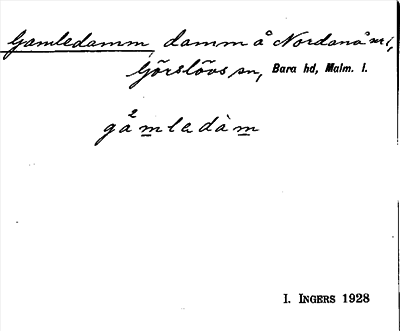 Gamledamm, damm å Nordanå nr 1,
Görslövs sn, Bara hd, Malm. l.
gå²mledàm
I. INGERS 1928